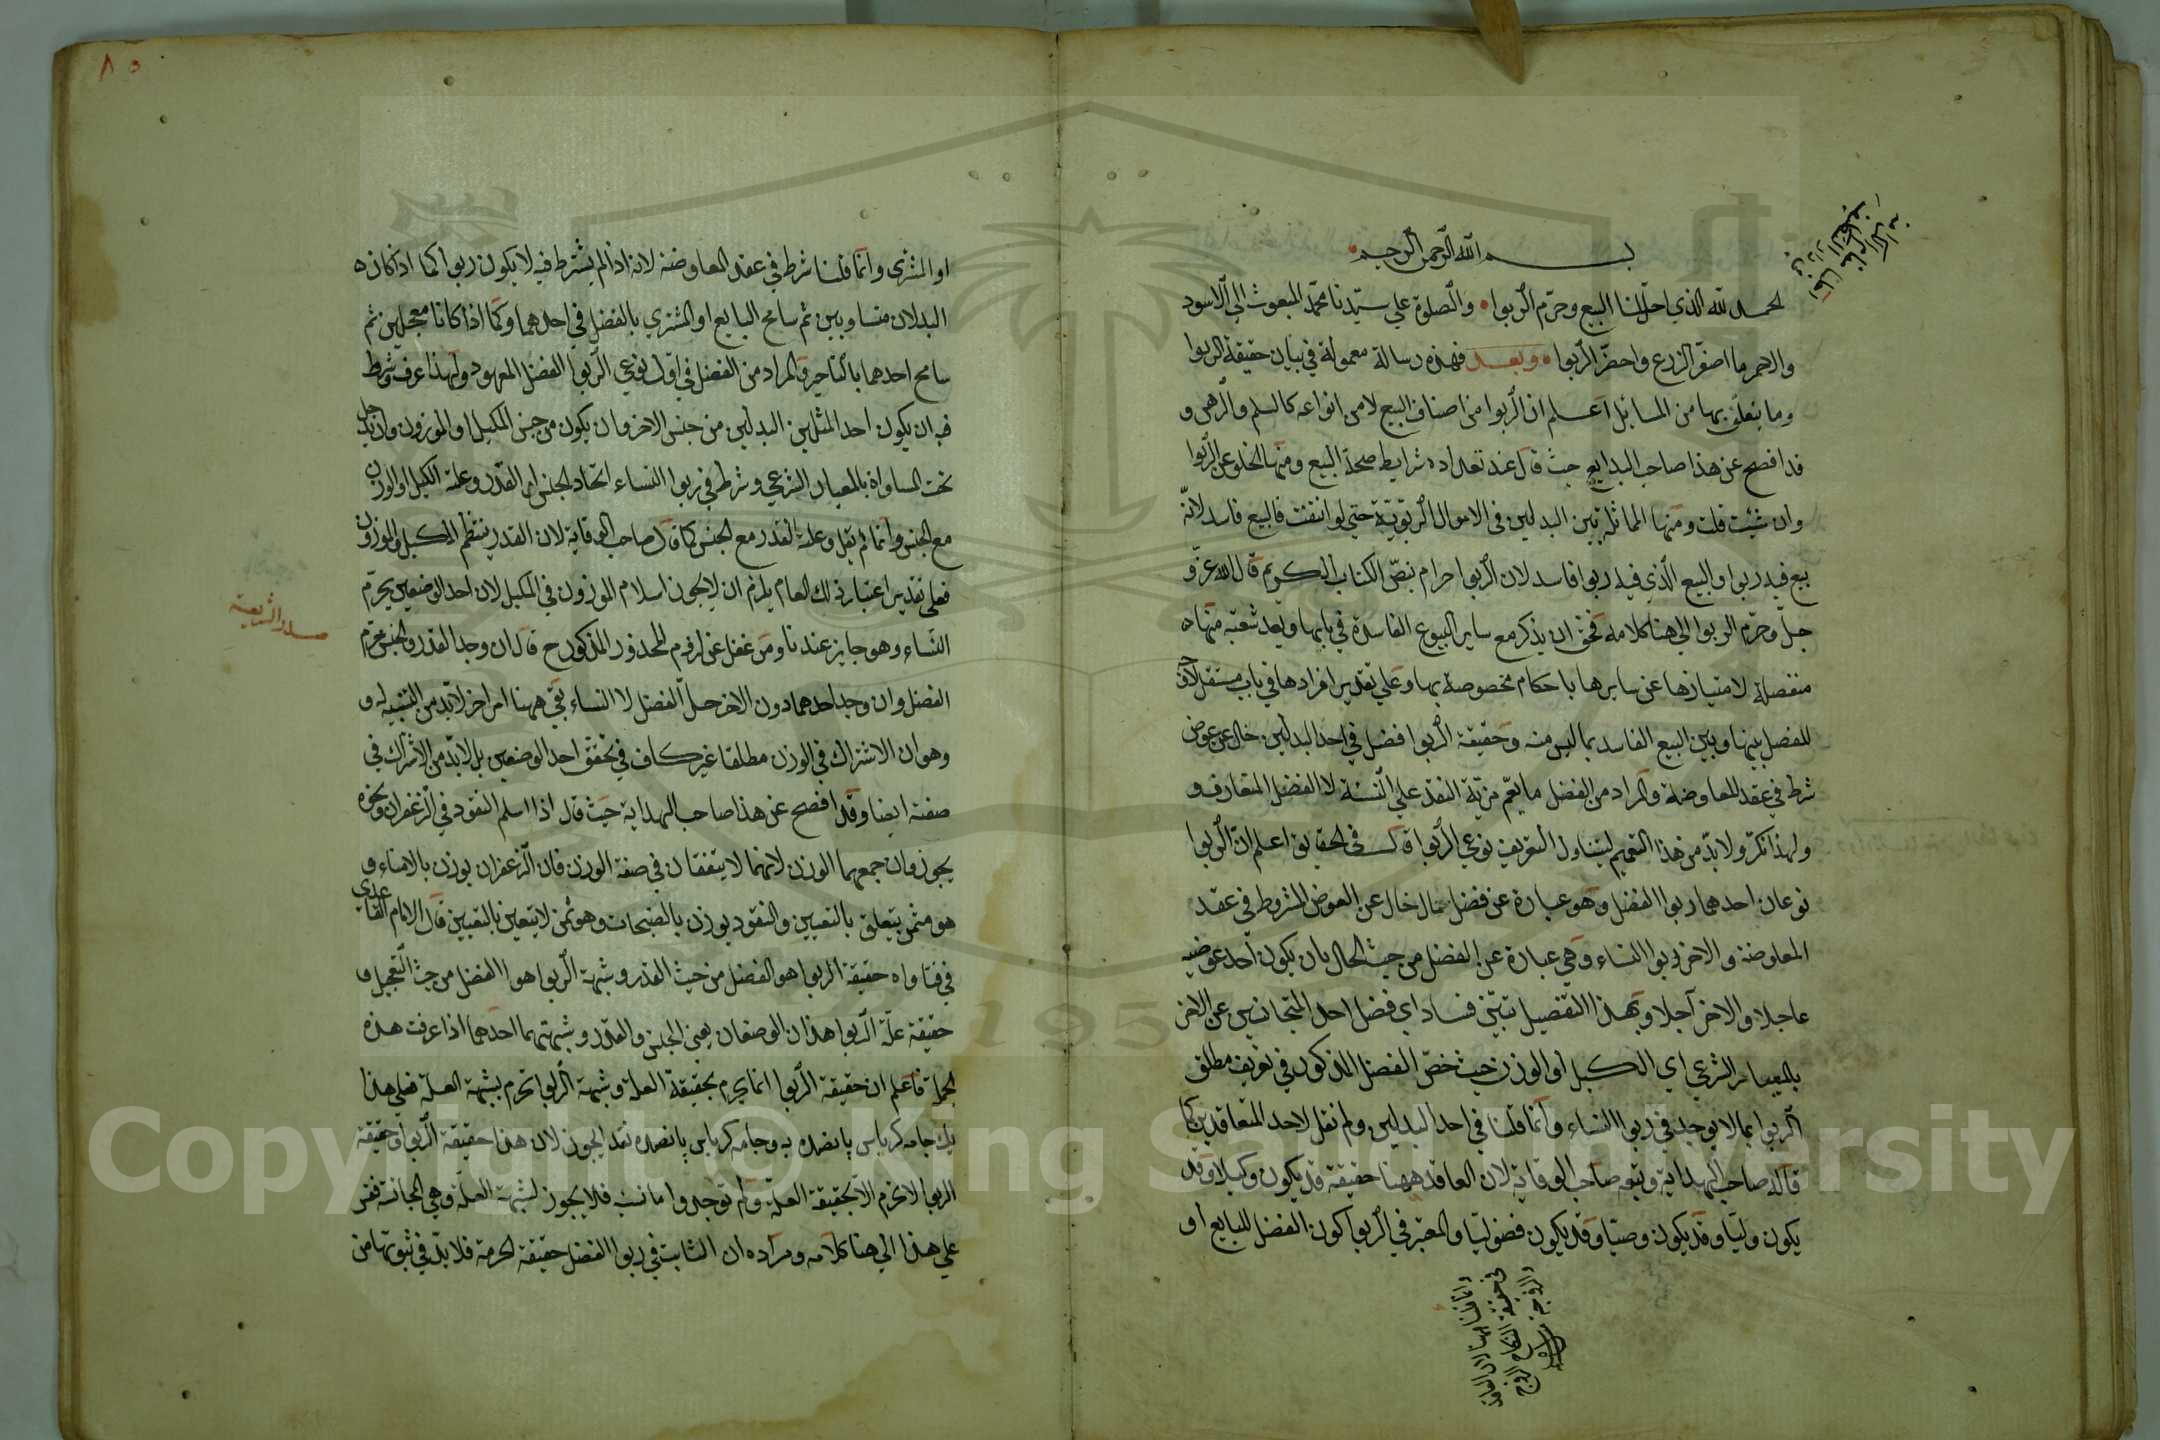 بسم الله الرحمن الرحيم
الحمد لله الذي احل لنا البيع وحرم الربوا والصلوة علي سيدنا محمد المبعوث الي الاسود
والاحمر ما اصفر الزرع واحضر الربوا وبعد فهذه رسالة معمولة في بيان حقيقة الربوا
وما يتعلق بها من المسايل اعلم ان الربوا من اصناف البيع لا من انواعه كالسلم والرهن و
قد افصح عن هذا صاحب البدايع حيث قال عند تعداده شرايط صحة البيع ومنها الخلو عن الربوا
وان شيت قلت ومنها المماثلة بين البدلين في الاموال الربوية حتي لو انتفت فالبيع فاسد لانه
بيع فيه ربوا والبيع الذي فيه ربوا فاسد لان الربوا حرام بنص الكتاب الكريم قال الله عز و
جل وحرم الربوا الي هنا كلامه فحق ان يذكر مع ساير البيوع الفاسدة في بابها ويعد شعبة منها
منفصلة لامتيازها عن سايرها باحكام مخصوصة بها وعلي تقدير افرادها في باب مستقل لا وجه
للفصل بينها وبين البيع الفاسد بما ليس منه وحقيقة الربوا فضل في احد البدلين خال عن عوض
شرط في عقد المعاوضة والمراد من الفضل ما يعم مزية النقد علي النسئة لا الفضل المتعارف و
ولهذا نكر ولا بد من هذا التعميم ليتناول التعريف نوعي الربوا قال في الحقايق اعلم ان الربوا
نوعان احدهما ربوا الفضل وهو عبارة عن فضل مال خال عن العوض المشروط في عقد
المعاوضة والاخر ربوا النساء وهي عبارة عن الفضل من حيث الحال بان يكون احد عوضيه
عاجلا والاخر آجلا وبهذا التفصيل تبين فساد اي فضل احد المتجانسين عن الاخر
بالمعيار الشرعي اي الكيل او الوزن حيث خص الفضل المذكور في تعريف مطلق
الربوا بما لا يوجد في ربوا النساء وانما قلنا في احد البدلين ولم نقل لاحد المتعاقدين كما
قاله صاحب الهداية وتبعه صاحب الوقاية لان العاقد ههنا حقيقة قد يكون وكيلا وقد
يكون وليا وقد يكون وصيا وقد يكون فضوليا والمعتبر في الربوا كون الفضل للبايع او
وانما قلنا ههنا لان العاقد
في حقيقة النكاح الزوج
والزوجة
٨٥
او المشتري وانما قلنا شرط في عقد المعاوضة لانه اذا لم يشترط فيه لا يكون ربوا كما اذا كان
البدلان متساويين ثم سامح البايع او المشتري بالفضل في احدهما وكما اذا كانا معجلين ثم
سامح احدهما بالتاخير والمراد من الفضل في اول نوعي الربوا الفضل المعهود ولهذا عرف وشرط
فيه ان يكون احد المثلين البدلين من جنس الاخر وان يكون من جنس المكيل او الموزون وان يدخل
تحت المساواة بالمعيار الشرعي وشرط في ربوا النساء اتحاد الجنس او القدر وعلته الكيل او الوزن
مع الجنس وانما لم يقل وعلته القدر مع الجنس كما قال صاحب الوقاية لان القدر ينتظم المكيل والموزون
فعلي تقدير اعتبار ذلك العام يلزم ان لا يجوز اسلام الموزون في المكيل لان احد الوصفين يحرم
النساء وهو جايز عندنا ومن غفل عن لزوم المحذور المذكور ح قال ان وجد القدر والجنس حرم
صدر الشريعة
الفضل وان وجد احدهما دون الاخر حل الفضل لا النساء بقي ههنا امر اخر لا بد من التنبيه له و
وهو ان الاشتراك في الوزن مطلقا غير كاف في تحقق احد الوصفين بل لا بد من الاشتراك في
صفته ايضا وقد افصح عن هذا صاحب الهداية حيث قال اذا اسلم النقود في الزعفران ونحوه
يجوز وان جمعهما الوزن لانهما لا يتفقان في صفة الوزن فان الزعفران يوزن بالامناء و
هو مثمن يتعلق بالتعيين والنقود يوزن بالصنجات وهو ثمن لا يتعين بالتعيين قال الامام القاعدي
في فتاواه حقيقة الربوا هو الفضل من حيث القدر وشبهة الربوا هو الفضل من حيث التعجيل و
حقيقة علة الربوا هذان الوصفان يعني الجنس والقدر وشبهتهما احدهما اذا عرفت هذه
الجملة فاعلم ان حقيقة الربوا انما يحرم بحقيقة العلة وشبهة الربوا تحرم بشبهة العلة فعلي هذا
يك جامه كرباس بانصده به وجامه كرباس بانصده نقد يجوز لان هذا حقيقة الربوا وحقيقة
الربوا لا تحرم الا بحقيقة العلة ولم توجد واما نسية فلا يجوز لشبهة العلة وهي المجانسة فقس
علي هذا الي هنا كلامه ومراده ان الثابت في ربوا الفضل حقيقة الحرمة فلا بد في ثبوتها من